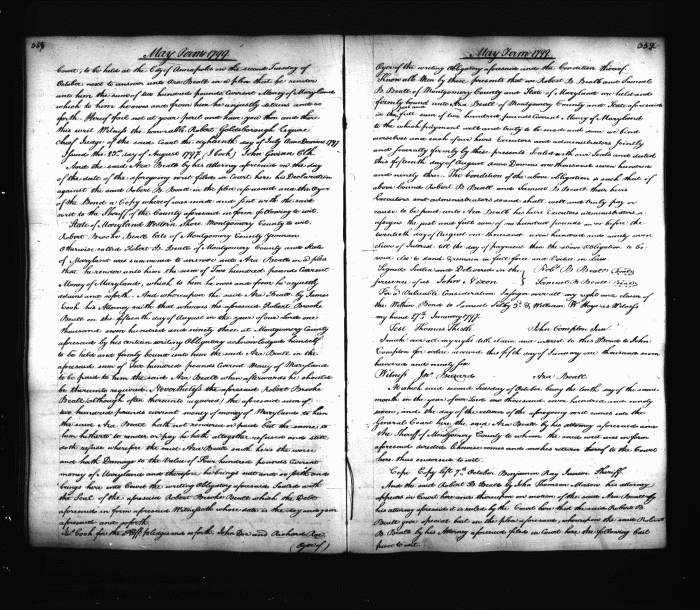 359
May Term 1799
Court, to be held at the City of Annapolis on the second Tuesday of
October next to answer unto Ara Beall in a plea that he render
unto him the sum of two hundred pounds Current Money of Maryland
which to him he owes and from him he unjustly detains and so
forth. Hereof fail not at your peril and have you then and there
this writ Witness the honorable Robert Goldsborough Esquire
Chief Judge of the said Court the eighteenth day of July Anno Domini 1797
Issued the 23d day of August 1797. (J Cook) John Gwinn Clk
And the said Ara Beall by his attorney aforesaid on the day
of the date of the aforegoing writ filed in Court here his Declaration
against the said Robert B. Beall in the plea aforesaid and the Oyer
of the Bond a Copy whereof was made and sent with the said
writ to the Sheriff of the County aforesaid in form following to wit.
State of Maryland Western Shore Montgomery County to wit.
Robert Brooke Beall late of Montgomery County yeoman
otherwise called Robert B. Beall of Montgomery County and State
of Maryland was summoned to answer unto Ara Beall in a plea
that he render unto him the sum of Two hundred pounds Current
Money of Maryland, which to him he owes and from he unjustly
detains and so forth. And whereupon the said Ara Beall by James
Cook his Attorney saith that whereas the aforesaid Robert Brooke
Beall on the fifteenth day of August in the year of our Lord one
thousand seven hundred and ninety three at Montgomery County
aforesaid by his Certain writing Obligatory acknowledged himself
to be held and firmly bound unto him the said Ara Beall in the
aforesaid sum of Two hundred pounds Current Money of Maryland
to be paid to him the said Ara Beall when afterwards he should
be thereunto required Nevertheless the aforesaid Robert Brooke
Beall (although often thereunto required) the aforesaid sum of
two hundred pounds current money of money of Maryland to him
the said Ara Beall hath not rendered or paid but the same to
him hitherto to render or pay he hath altogether refused and still
doth refuse wherefore the said Ara Beall saith he is the worse
and hath Damage to the Value of Four hundred pounds Current
money of Maryland and therefore he brings suit and so forth and
brings here into Court the writing Obligatory aforesaid Sealed with
the Seal of the aforesaid Robert Brooke Beall which the Debt
aforesaid in form aforesaid Witnesseth whose date is the day and year
aforesaid and so forth.
Js Cook for the Plff pledges and so forth. John Doe and Richard Roe
(Oyer of)
359
May Term 1799
Oyer of the writing Obligatory aforesaid and the Condition thereof.
Know all Men by these presents that we Robert B. Beall and Samuel
B. Beall of Montgomery County and State of Maryland are held and
firmly bound unto Ara Beall of Montgomery County and State aforesaid
in the full sum of two hundred pounds Current Money of Maryland
to the which payment well and truly to be made and done we bind
ourselves and each of our heirs Executors and administrators jointly
and severally firmly by these presents Sealed with our Seals and dated
this fifteenth day of August Anno Domini one thousand seven hundred
and ninety three. The Condition of the above obligation is such that if
above bound Robert B Beall and Samuel B. Beall their heirs
Executors and administrators so and shall well and truly pay or
cause to be paid unto Ara Beall his heirs Executors administrators or
assigns the just and full sum of one hundred pounds on or before the
twentieth day of August one thousand seven hundred and ninety seven
clear of Interest till the day of payment then the above Obligation to be
void else to stand & remain in full force and Virtue in Law.
Signed Sealed and Delivered in the presence of us John Nixon
Robt B. Beall (Seal)
Samuel B. Beall (Seal)
For a Valuable Consideration I assign over all my right and claim of
the Within Bond to Samuel Selby 3d & William W Hoye as Witness
my hand 27th January 1797.
Test Thomas
John Compton Junr
I make over all my right title claim and interest to this Bond to John
Compton for value received this fifth day of January one thousand seven
hundred and ninety six
Witness
Ara Beall
At which said second Tuesday of October being the tenth day of the same
month in the year of our Lord one thousand seven hundred and ninety
seven, and the day of the return of the aforegoing writ comes into the
General Court here, the said Ara Beall by his attorney aforesaid and
the Sheriff of Montgomery County to whom the said writ was in form
aforesaid directed likewise comes and makes return thereof to the Court
here thus endorsed to wit.
Cepi Copy left 7th October Benjamin Ray Junior Sheriff.
And the said Robert B. Beall by John Thomson Mason his attorney
appears in Court here and thereupon on motion of the said Ara Beall by
his attorney aforesaid it is ruled by the Court here that the said Robert B.
Beall give special bail in the plea aforesaid, whereupon the said Robert
B. Beall by his Attorney aforesaid filed in Court here the following bail
piece to wit.